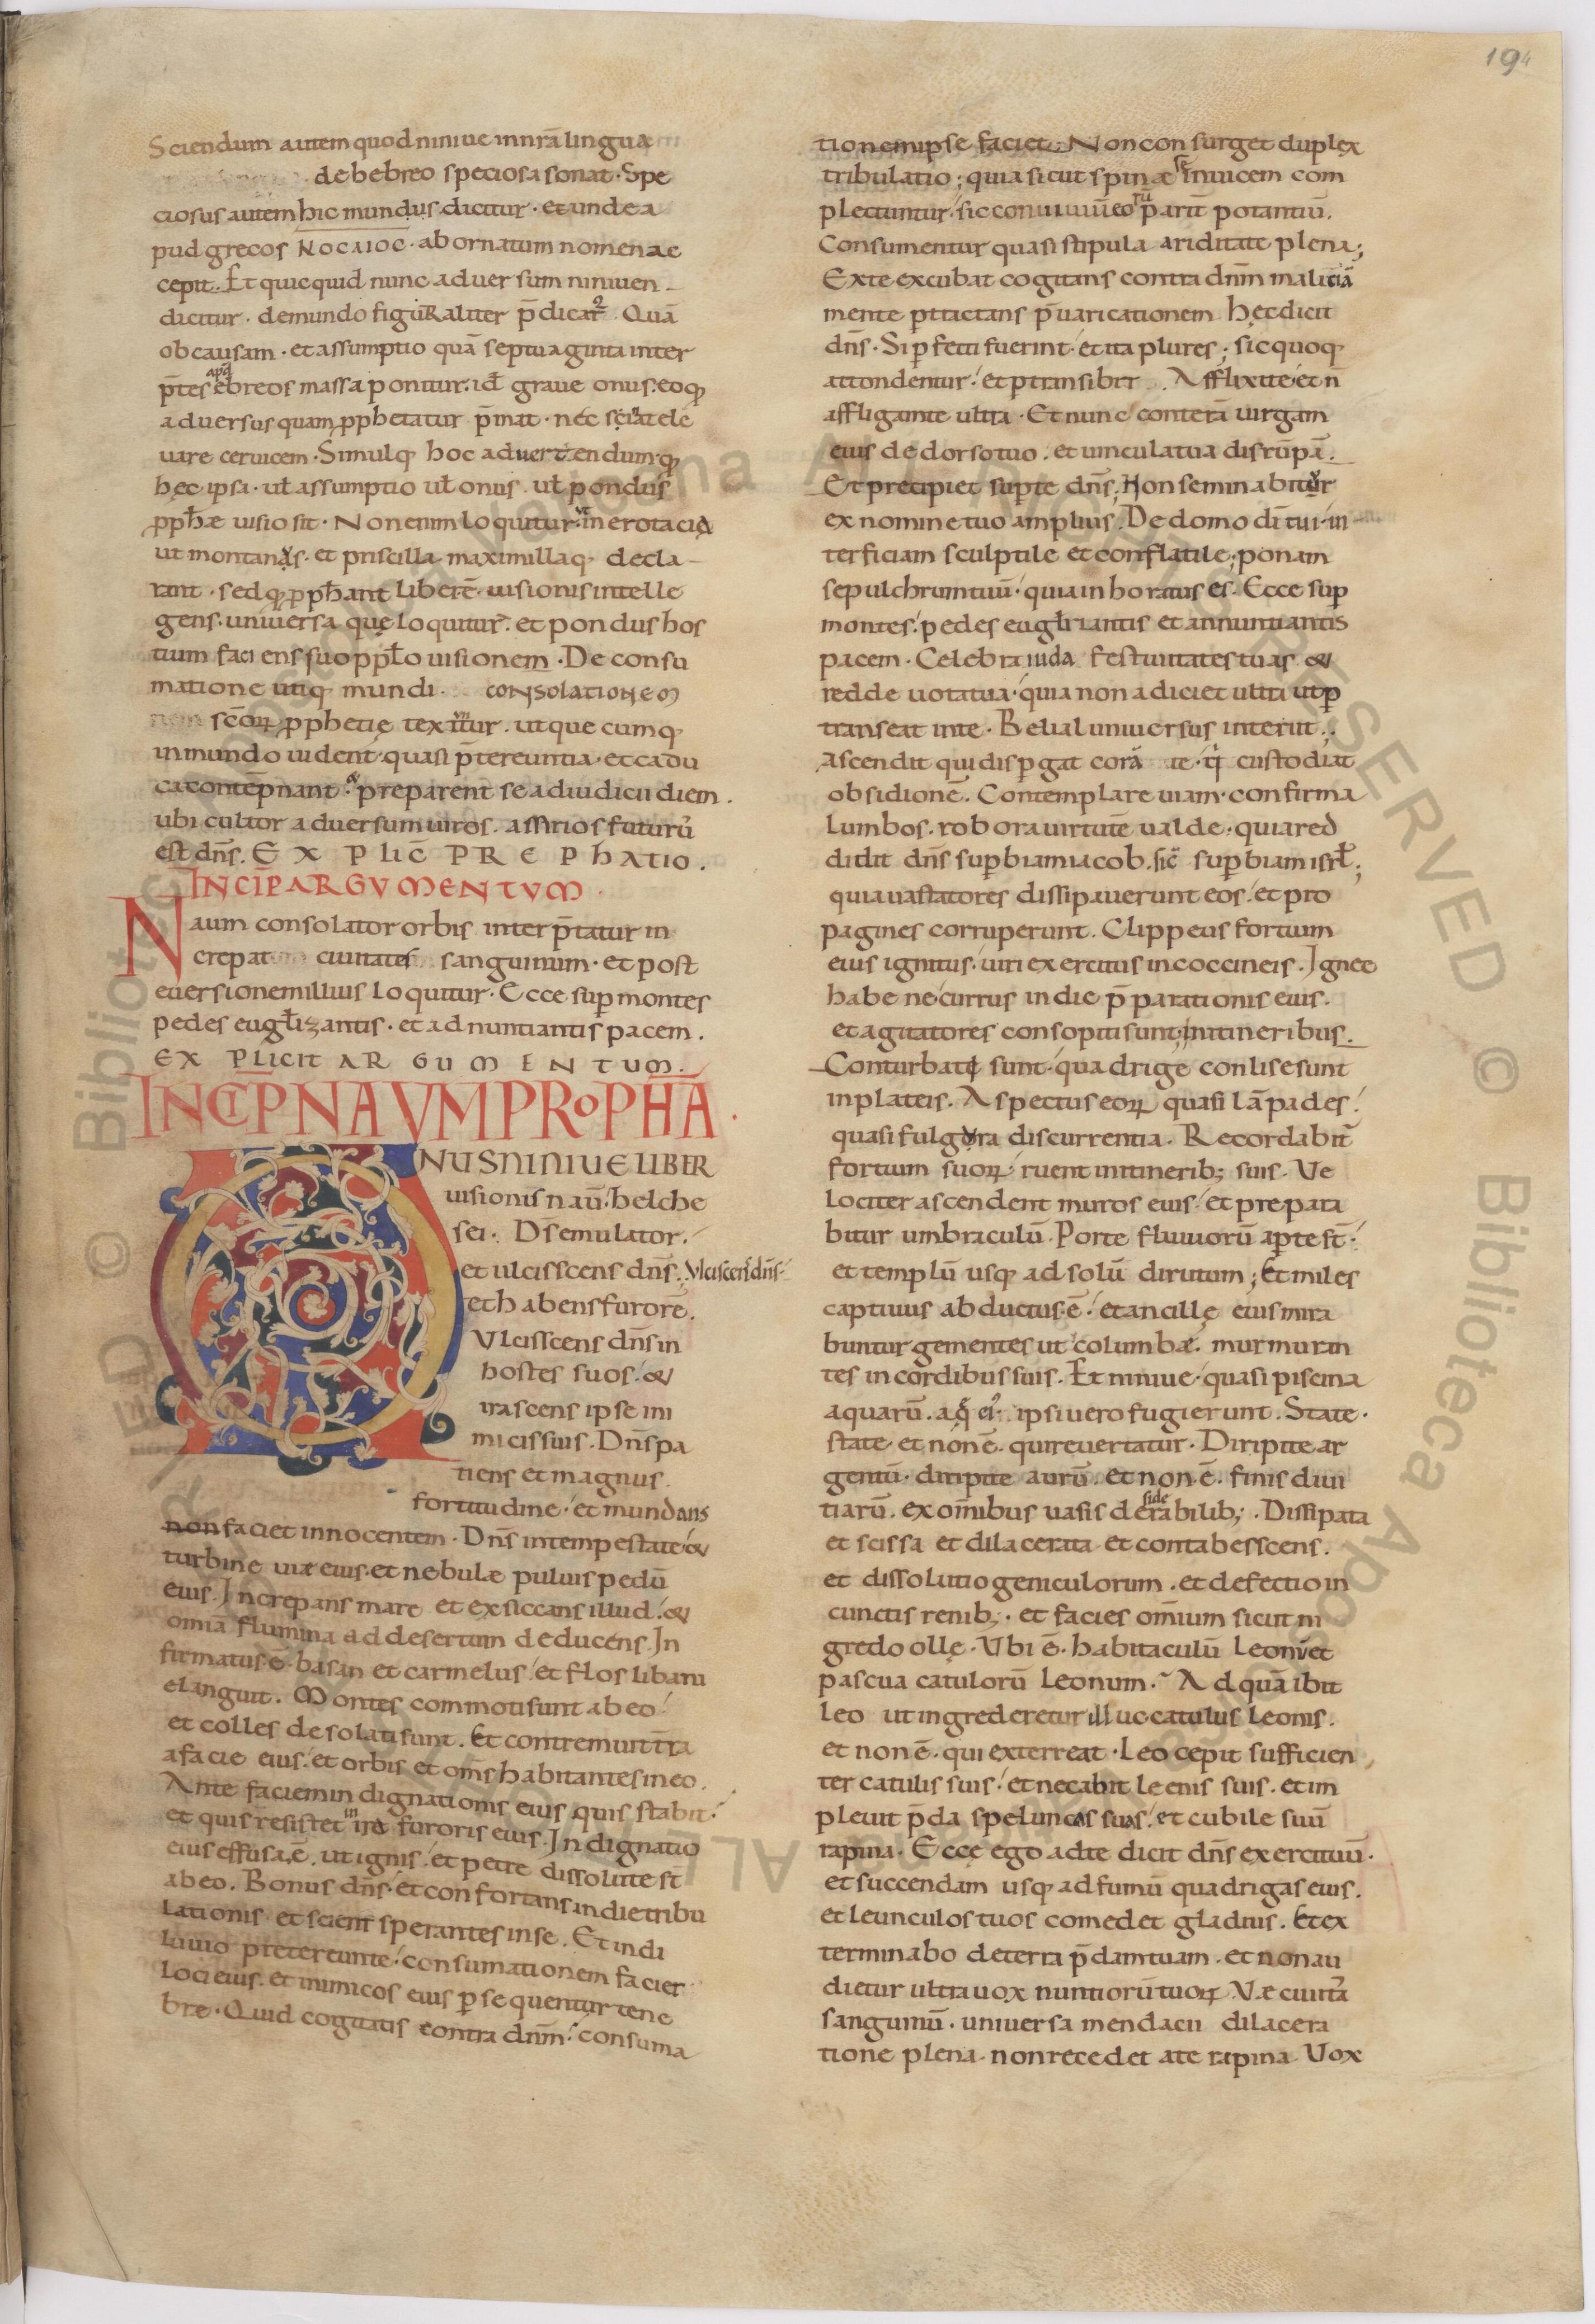 194
Sciendum autem quod niniue in nr̄a lingua
de hebreo speciosa sonat. Spe
ciosus autem hic mundus dicitur. et unde a
pud grecos NOCAIOC. ab ornatum nomen ac
cepit. Et quicquid nunc aduersum niniuen
dicitur. de mundo figuRaliter p̄dicat᷑. Quā
ob causam. et assumptio quā septuaginta inter
p̄tes apđ ebreos massa ponitur. id̄ graue onus. eo qꝫ
aduersus quam ꝓphetatur p̄mat. nec sciat ele
uare ceruicem. Simulqꝫ hoc aduertendum. qꝫ
hęc ipsa. ul̄ assumptio ul̄ onus. ul̄ pondus
ꝓph̄æ uisio sit. Non enim loquitur in
ut montanus. et priscilla maximillaqꝫ decla
rant. sed qꝫ ꝓph̄ant liber ē. uisionis intelle
gens. uniuersa quę loquitur. et pondus hos
tium faciens suo ppl̄o uisionem. De consu
matione utiqꝫ mundi. CONSOLATIONEM
sc̄oꝝ ꝓphetię texitur. ut quecumqꝫ
in mundo uident᷑. quasi p̄tereuntia. et cadu
ca contēpnant. preparent se ad iudicii diem.
ubi cultor aduersum uiros. assirios futurus
est dn̄s. EXPLIC̄ PREPHATIO.
INCIP̄ ARGUMENTUM.
Naum consolator orbis interp̄tatur in
crepat ciuitatē sanguinum. et post
euersionem illius loquitur. Ecce super montes
pedes eugl̄izantis. et adnuntiantis pacem.
EXPLICIT ARGUMENTUM.
INCIP̄ NAUM PROPH̄A.
ONUS NINIUE LIBER
uisionis naū. helche
sei. Ds emulator.
et ulcisscens dn̄s. Ulciscens dn̄s
et habens furorē.
Ulcisscens dn̄s in
hostes suos. &
irascens ipse ini
micis suis. Dn̄s pa
tiens et magnus
fortitudine. et mundans
non faciet innocentem. Dn̄s in tempestate. &
turbine uiæ eius. et nebulæ puluis pedū
eius. Increpans mare et exsiccans illud. &
omīa flumina ad desertum deducens. In
firmatus ē. basan et carmelus. et flos libani
elanguit. Montes commoti sunt ab eo.
et colles desolati sunt. Et contremuit tr̄a
a facie eius. et orbis et om̄s habitantes in eo.
Ante faciem indignationis eius quis stabit.
et quis resistet in ira furoris eius. Indignatio
eius effusa ē. ut ignis. et petre dissolute st̄
ab eo. Bonus dn̄s. et confortans in die tribu
lationis et sciens sperantes in se. Et in di
luuio pretereunte. consumationem faciet
loci eius. et inimicos eius ꝑsequentur tene
bræ. Quid cogitatis contra dn̄m. consuma
tionem ipse faciet. Non consurget duplex
tribulatio; quia sicut spinæ se inuicem com
plectuntur. sic conuiuiū eorū parit᷑ potantiū.
Consumentur quasi stipula ariditate plena;
Ex te exibat cogitans contra dn̄m malitiā
mente ꝑtractans p̄uaricationem. Hęc dicit
dn̄s. Si ꝑfecti fuerint. et ita plures; sic quoqꝫ
attondentur. et ꝑtransibit. Afflixi te. et n̄
affligam te ultra. Et nunc conterā uirgam
eius de dorso tuo. et uincula tua disrūpā.
Et precipiet super te dn̄s; Non seminabitur
ex nomine tuo amplius. De domo dī tui. in
terficiam sculptile et conflatile; ponam
sepulchrum tuū. quia inhoratus es. Ecce suꝑ
montes. pedes eugl̄izantis et annuntiantis
pacem. Celebra iuda festiuitates tuas &
redde uota tua. quia non adiciet ultra ut ꝑ
transeat in te. Belial uniuersus interiit.
Ascendit qui dispergat corā te. qi custodiat
obsidionē. Contemplare uiam. confirma
lumbos. robora uirtutē ualde. quia red
didit dn̄s suꝑbiam iacob. sic̄ suꝑbiam isrl̄;
quia uastatores dissipauerunt eos. et pro
pagines corruperunt. Clippeus fortium
eius ignitus. uiri exercitus in coccineis. Igneę
habenę currus in die p̄parationis eius.
et agitatores consopiti sunt. in itineribus.
Conturbatę sunt. quadrigę conlise sunt
in plateis. Aspectus eoꝝ quasi lāpades.
quasi fulgura discurrentia. Recordabit᷑
fortium suoꝝ. ruent in itinerib; suis. Ve
lociter ascendent muros eius. et prepara
bitur umbraculū. Porte fluuiorū aꝑte st̄.
et templū usqꝫ ad solū dirutum; Et miles
captiuus abductus ē. et ancillę eius mina
buntur gementes ut columbæ. murmuran
tes in cordibus suis. Et niniue. quasi piscina
aquarū. aq̄ ei᷒. ipsi uero fugierunt. State.
state et non ē. qui reuertatur. Diripite ar
gentū. diripite aurū. et non ē. finis diui
tiarū. ex om̄ibus uasis desiderabilib;. Dissipata
et scissa et dilacerata et contabesscens.
et dissolutio geniculorum. et defectio in
cunctis renib;. et facies om̄ium sicut ni
gredo ollę. Ubi ē. habitaculū leonū et
pascua catulorū leonum. Ad quā ibit
leo ut ingrederetur illuc catulus leonis.
et non ē. qui exterreat. Leo cepit sufficien
ter catulis suis. et necabit leenis suis. et im
pleuit p̄da speluncas suas. et cubile suū
rapina. Ecce ego ad te dicit dn̄s exercituū.
et succendam usqꝫ ad fumū quadrigas eius.
et leunculos tuos comedet gladius. Et ex
terminabo de terra p̄dam tuam. et non au
dietur ultra uox nuntiorū tuoꝝ. Væ ciuitas
sanguinū. uniuersa mendacii dilacera
tione plena. non recedet a te rapina. Uox